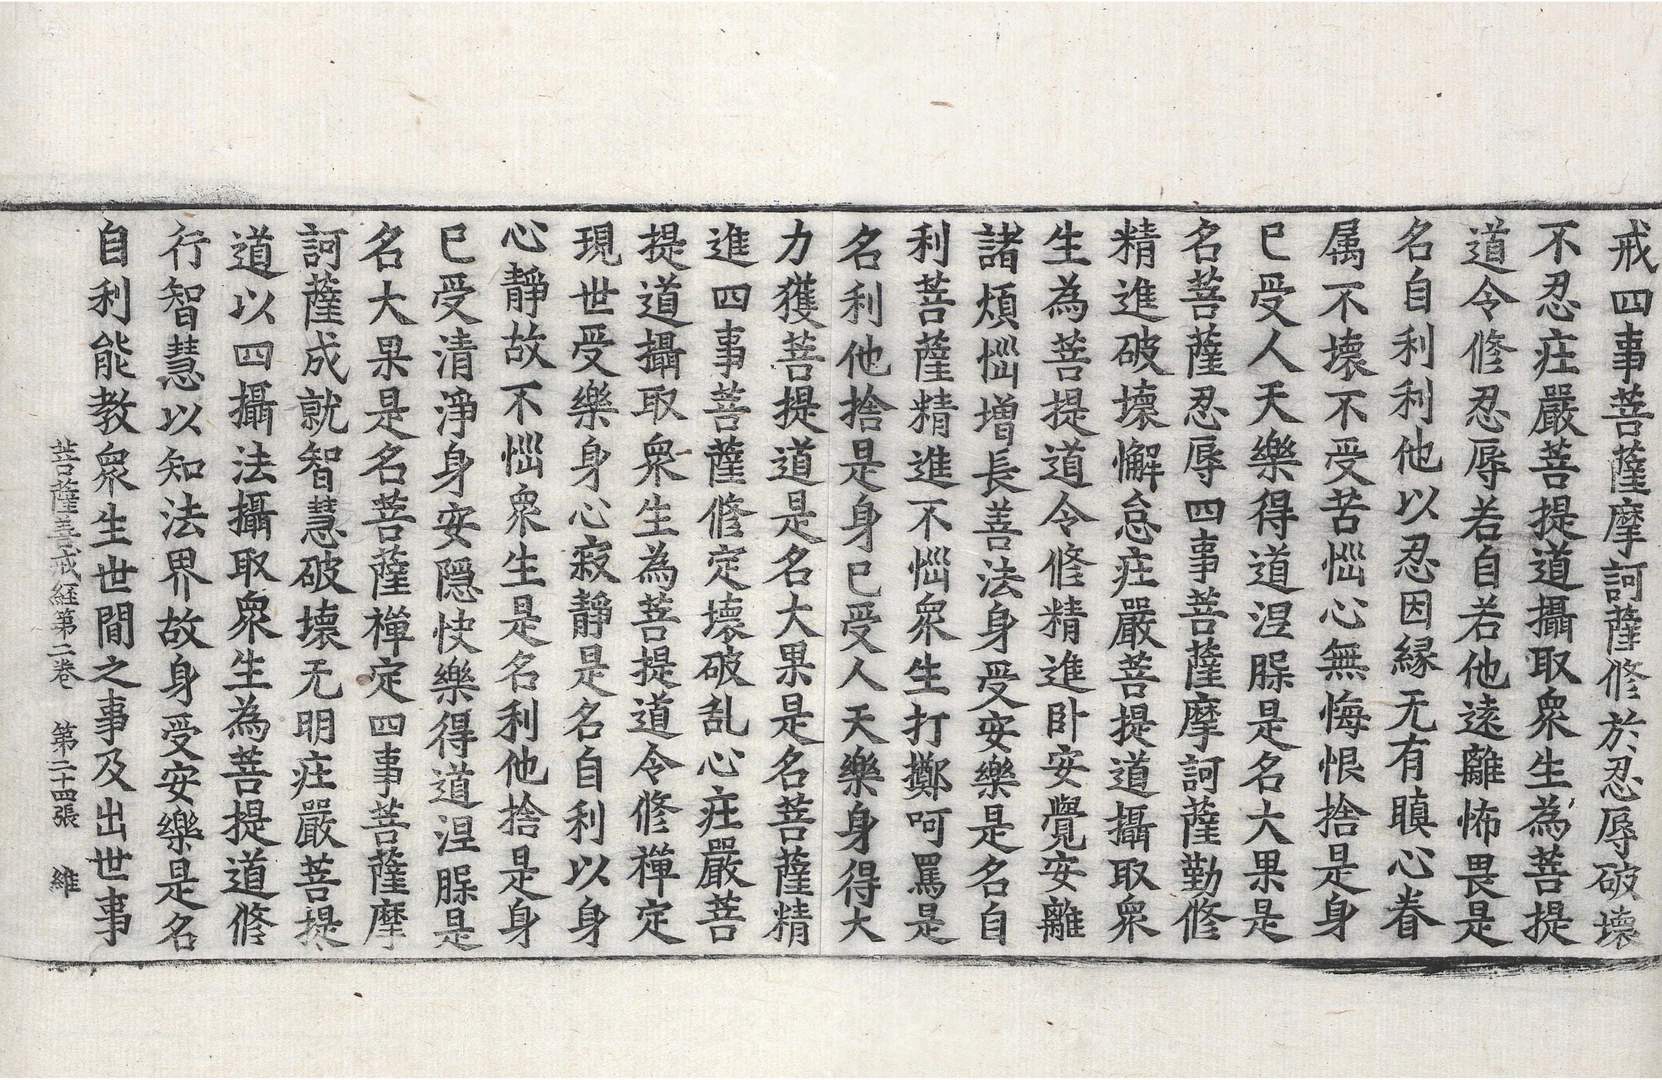 戒四事菩薩摩訶薩修於忍辱破壞
不忍庄嚴菩提道攝取衆生為菩提
道令修忍辱若自若他遠離怖畏是
名自利利他以忍因縁无有瞋心眷
属不壞不受苦惱心無悔恨捨是身
已受人天樂得道涅𣵀是名大果是
名菩薩忍辱四事菩薩摩訶薩勤修
精進破壞懈怠庄嚴菩提道攝取衆
生為菩提道令修精進卧安覺安離
諸煩惱增長善法身受安樂是名自
利菩薩精進不惱衆生打擲呵罵是
名利他捨是身已受人天樂身得大
力獲菩提道是名大果是名菩薩精
進四事菩薩修定壞破乱心庄嚴菩
提道攝取衆生為菩提道令修禪定
現世受樂身心寂靜是名自利以身
心靜故不惱衆生是名利他捨是身
已受清淨身安隱快樂得道涅槃是
名大果是名菩薩禪定四事菩薩摩
訶薩成就智慧破壞无明庄嚴菩提
道以四攝法攝取衆生為菩提道修
行智慧以知法界故身受安樂是名
自利能教衆生世間之事及出世事
菩薩善戒経第二卷 第二十四張 維